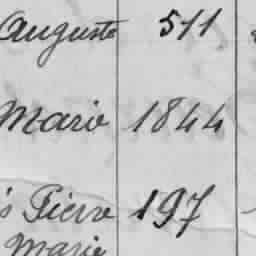 Auguste 511
Marie 1844
Pierre 197
Marie